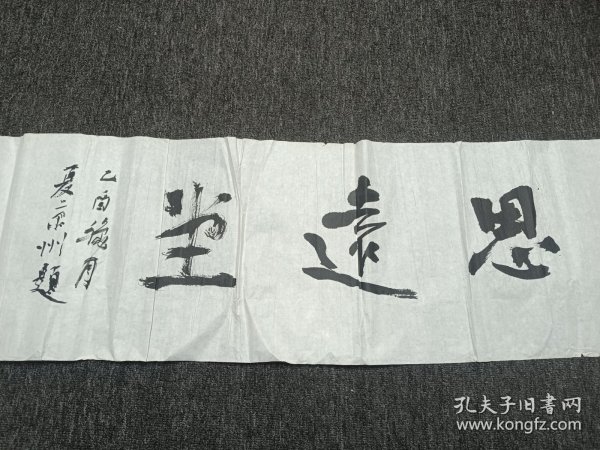 思遠堂
乙酉穐月
夏宗州題
孔夫子旧書网
www.kongfz.com